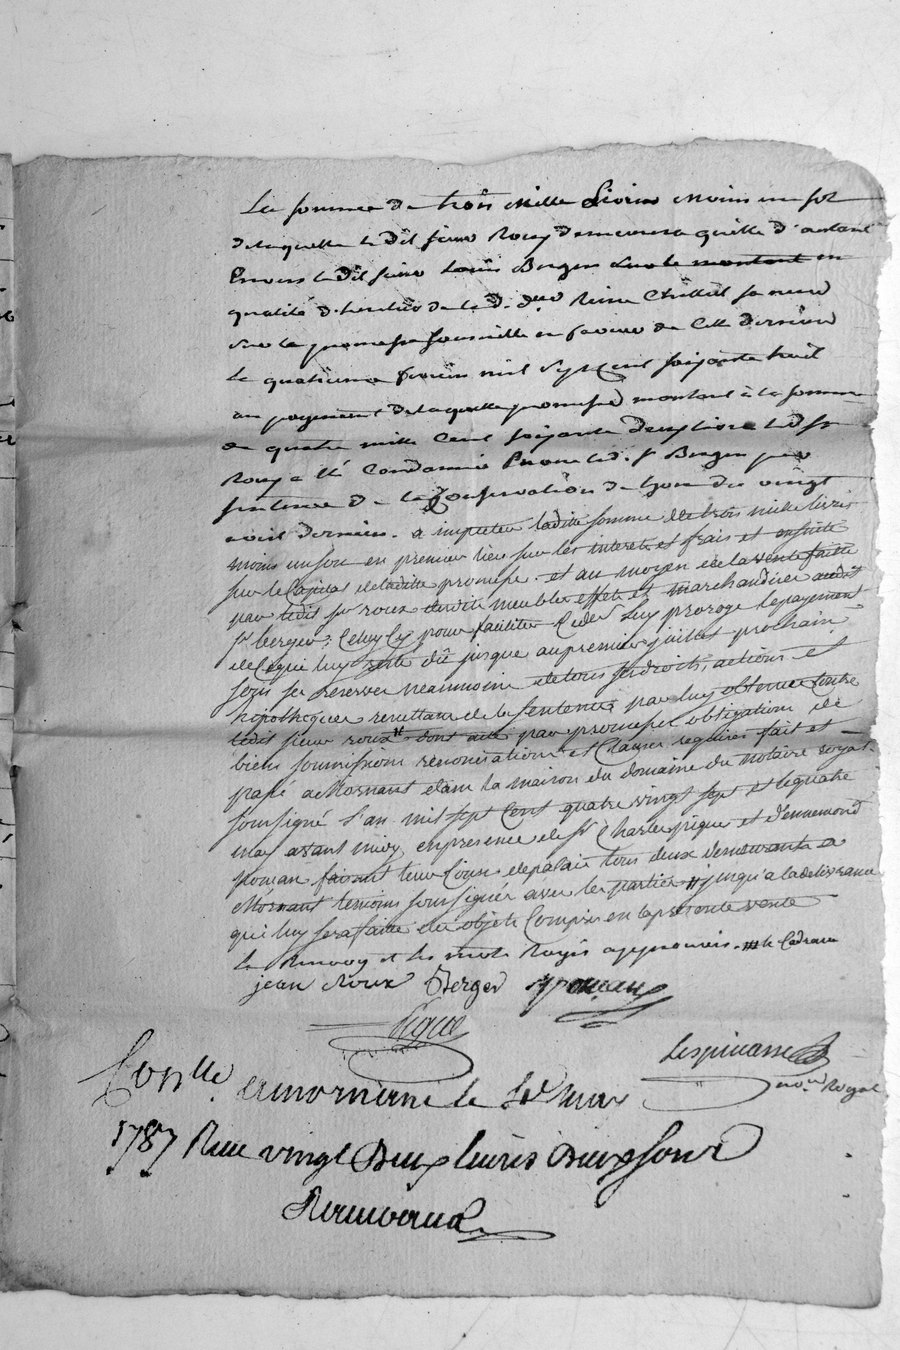 La somme de trois mille Livres moins un sol
de laquelle le dit sieur Roux demeurera quitte d'autant
Envers le dit sieur Louis Berger sur le montant en
qualité d'heritier de la d. dlle Reine Chillet sa mere
sur la promesse souscritte en faveur de cette derniere
le quatrieme fevrier mil sept cent soixante huit
au payement de laquelle promesse montant à la somme
de quatre mille cent soixante deux livres led. sr
Roux a été Condamné Envers led. sr Berger par
sentence de la Conservation de Lyon du vingt
avril dernier. a imputer ladite somme de trois mille livres
moins un sou en premier lieu sur les interets et frais et ensuitte
sur le Capital de ladite promesse. et au moyen de la vente faitte
par ledit sr roux desdits meubles effets et marchandises audit
sr berger, Celuy Cy pour faciliter led. sr luy proroge le payement
de Ce qui luy reste dû jusque au premier juillet prochain
sous la reserve neanmoins de tous ses droits, actions et
hipotheques resultant de la Sentence par luy obtenue Contre
ledit sieur roux # dont acte par promesses obligations de
biens soumissions renonciations et Clauses requises fait et
passé a Mornant dans la maison du domaine du notaire royal
soussigné l'an mil sept Cent quatre vingt sept et le quatre
may avant midy, en presence de sr Charles pigue et d'ennemond
poman faisant leur Cours de palais tous deux demeurants a
Mornant temoins soussignés avec les parties # jusqu'a la delivrance
qui luy sera faitte des objets Compris en la presente vente
le Renvoy et les mots Rayés approuvés.
jean Roux Berger Poman
Pigue
Lespinasse
no.re Royal
Con.lle a mornant le May
1787 Reçu vingt Deux livres Dix sous